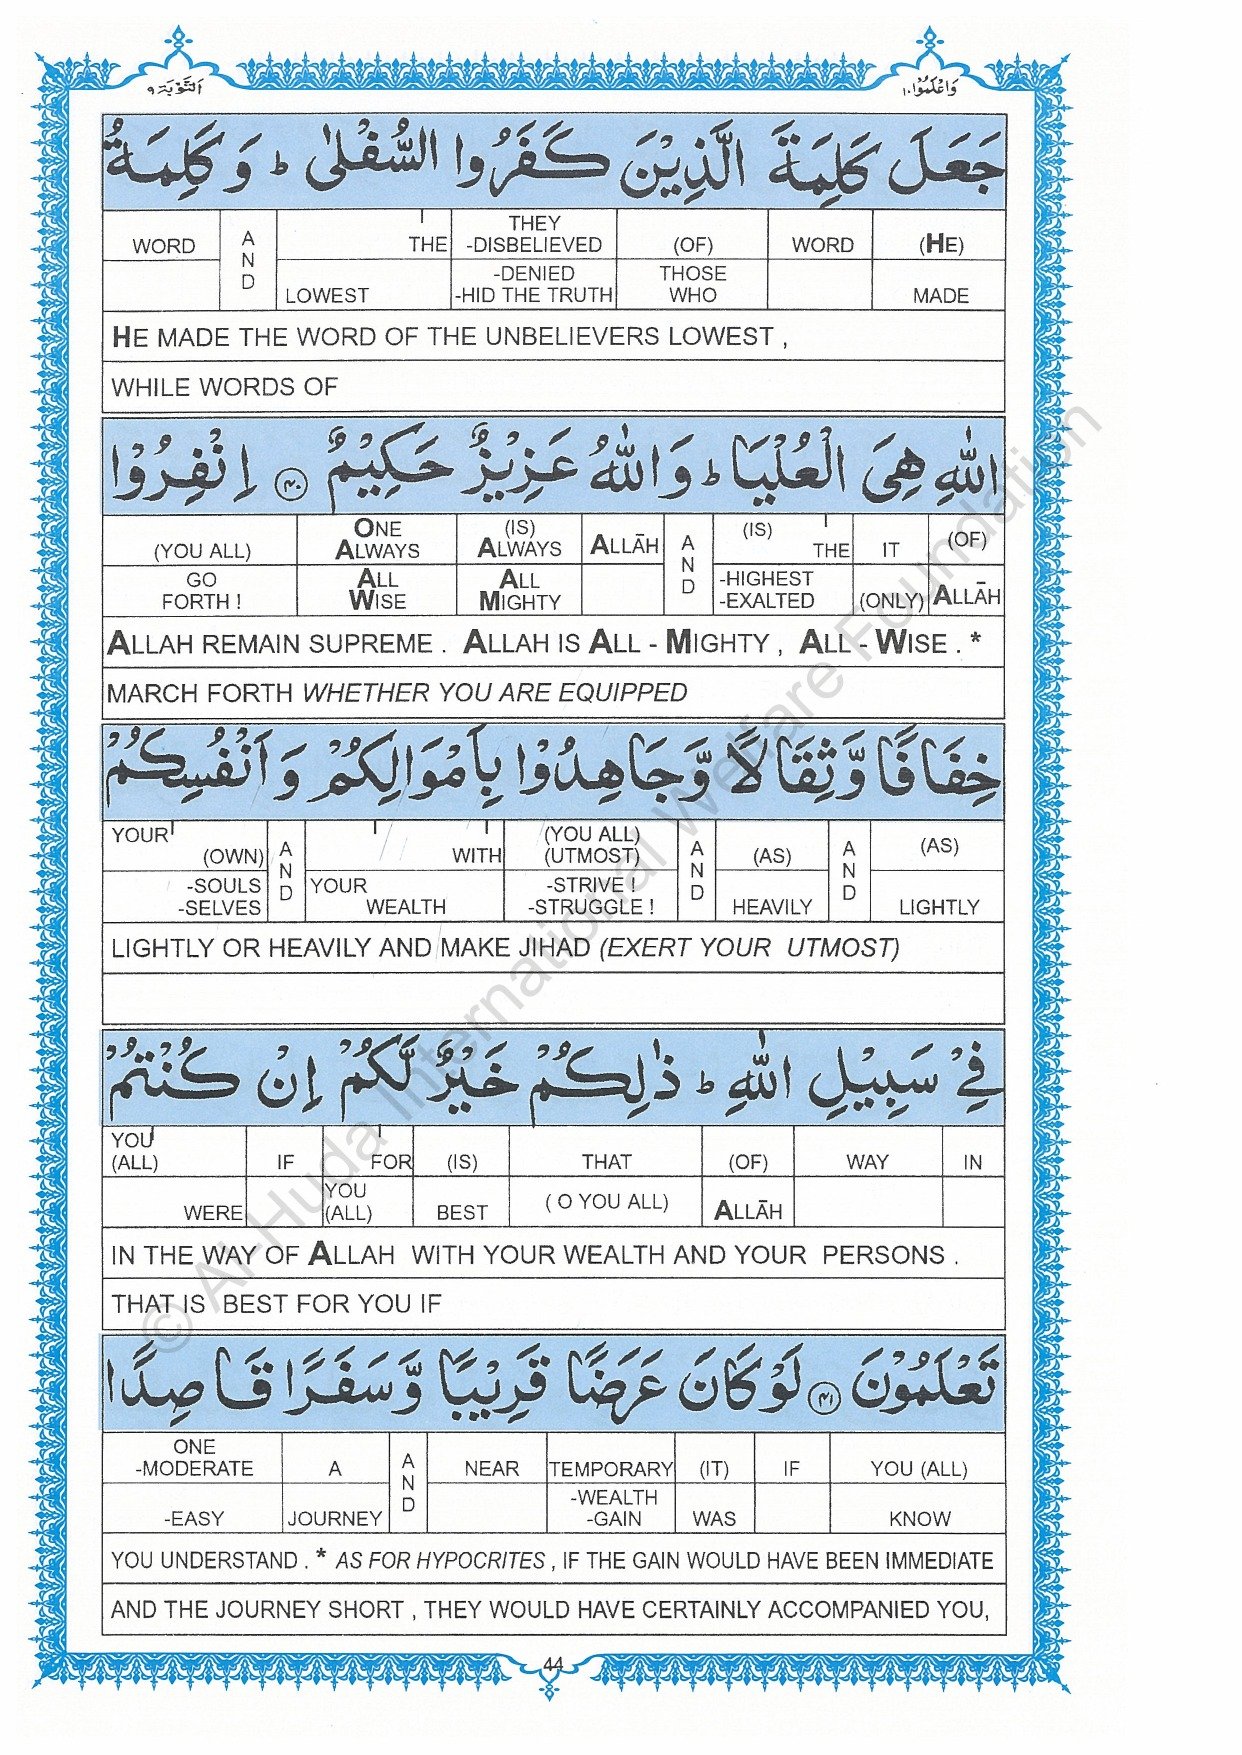 وَاعْلَمُوْا ١٠
اَلتَّوْبَة ٩
جَعَلَ كَلِمَةَ الَّذِيْنَ كَفَرُوا السُّفْلٰى ؕ وَ كَلِمَةُ
WORD AND THE LOWEST THEY -DISBELIEVED -DENIED -HID THE TRUTH (OF) THOSE WHO WORD (HE) MADE
HE MADE THE WORD OF THE UNBELIEVERS LOWEST ,
WHILE WORDS OF
اللّٰهِ هِىَ الْعُلْيَا ؕ وَ اللّٰهُ عَزِيْزٌ حَكِيْمٌ ۴۰ اِنْفِرُوْا
(YOU ALL) GO FORTH ! ONE ALWAYS ALL WISE (IS) ALWAYS ALL MIGHTY ALLĀH AND (IS) THE -HIGHEST -EXALTED IT (ONLY) (OF) ALLĀH
ALLAH REMAIN SUPREME . ALLAH IS ALL - MIGHTY , ALL - WISE . *
MARCH FORTH WHETHER YOU ARE EQUIPPED
خِفَافًا وَّ ثِقَالًا وَّ جَاهِدُوْا بِاَمْوَالِكُمْ وَ اَنْفُسِكُمْ
YOUR (OWN) -SOULS -SELVES AND WITH YOUR WEALTH (YOU ALL) (UTMOST) -STRIVE ! -STRUGGLE ! AND (AS) HEAVILY AND (AS) LIGHTLY
LIGHTLY OR HEAVILY AND MAKE JIHAD (EXERT YOUR UTMOST)
فِىْ سَبِيْلِ اللّٰهِ ؕ ذٰلِكُمْ خَيْرٌ لَّكُمْ اِنْ كُنْتُمْ
YOU (ALL) WERE IF FOR YOU (ALL) (IS) BEST THAT ( O YOU ALL) (OF) ALLĀH WAY IN
IN THE WAY OF ALLAH WITH YOUR WEALTH AND YOUR PERSONS .
THAT IS BEST FOR YOU IF
تَعْلَمُوْنَ ۴۱ لَوْ كَانَ عَرَضًا قَرِيْبًا وَّ سَفَرًا قَاصِدًا
ONE -MODERATE -EASY A JOURNEY AND NEAR TEMPORARY -WEALTH -GAIN (IT) WAS IF YOU (ALL) KNOW
YOU UNDERSTAND . * AS FOR HYPOCRITES , IF THE GAIN WOULD HAVE BEEN IMMEDIATE
AND THE JOURNEY SHORT , THEY WOULD HAVE CERTAINLY ACCOMPANIED YOU,
44
© Al-Huda International Welfare Foundation